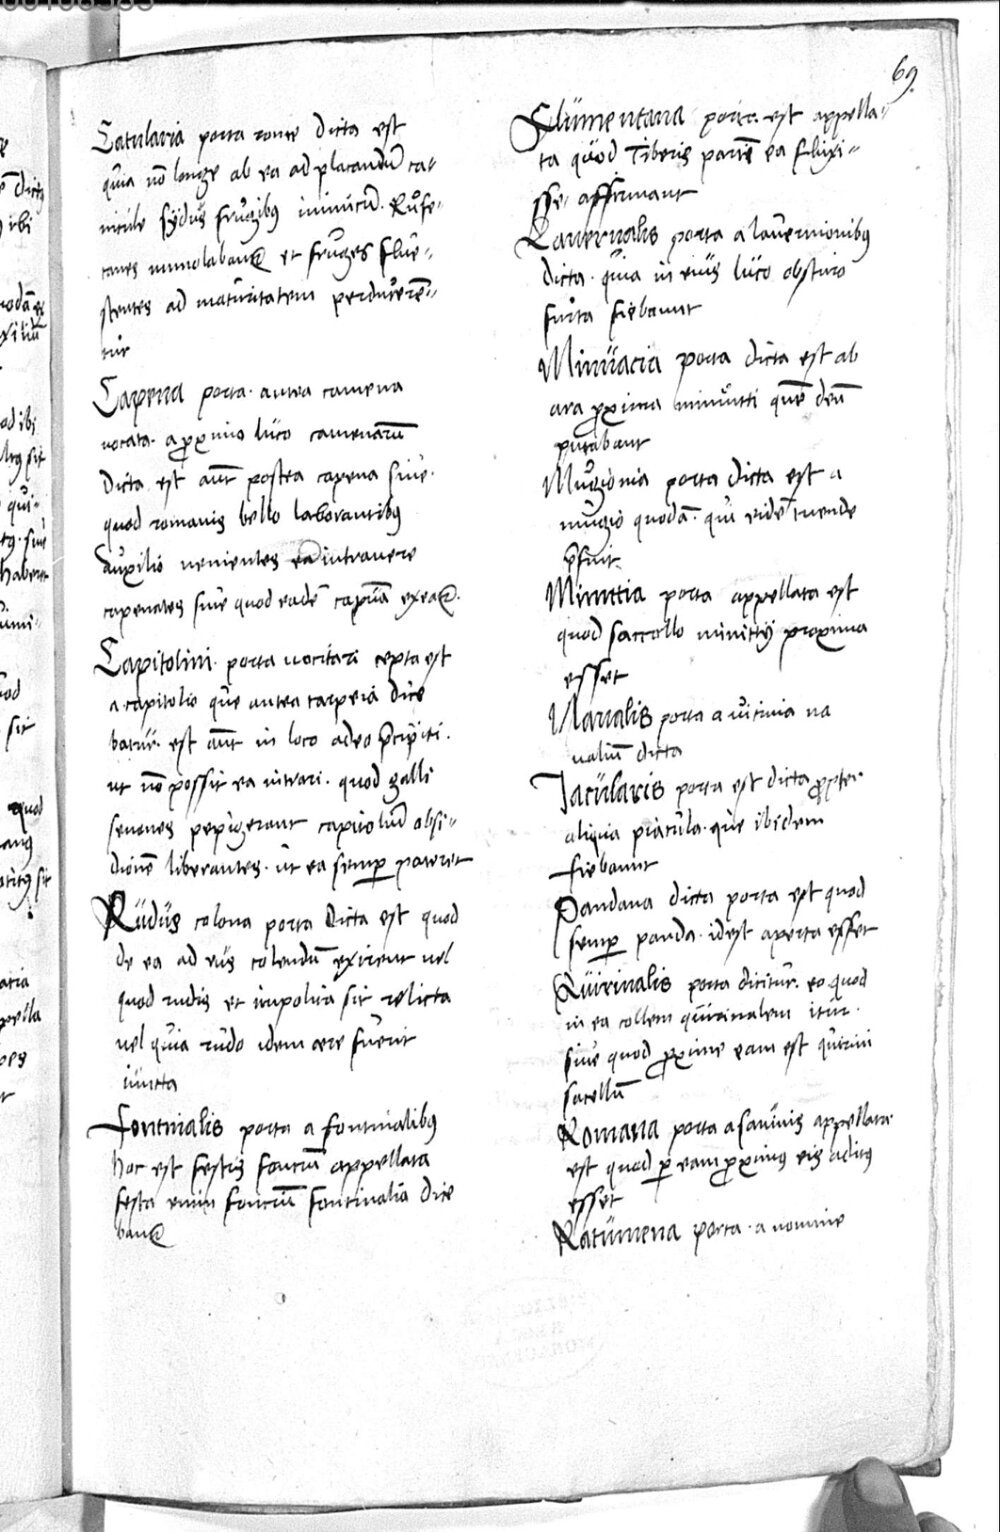 69
Catularia porta rome dicta est
quia nõ longe ab ea ad placandũ ca-
nicule sydus frugibus inimicũ. Rufe-
canes immolabant et fruges flave-
scentes ad maturitatem perduceren-
tur
Capena porta. antea camena
vocata. a proximo luco camenarũ
dicta est aũt postea capena sive.
quod romanis bello laborantibus
auxilio venientes ea intravere
capenates sive quod eadẽ capuã exeat.
Capitolini. porta vocitari cepta est
a capitolio que antea tarpeia dice
batur. est aũt in loco adeo p̃cipiti.
ut nõ possit ea intrari. quod galli
senones pepigerant capitoliũ obsi-
dione liberantes. ut ea semper pateret
Rudus colona porta dicta est quod
de ea ad rus colendũ exirent vel
quod rudis et impolita sit relicta
vel quia rudo idem aere fuerit
iuncta
Fontinalis porta a fontinalibus
hoc est festis fontiũ appellata
festa enim fontiũ fontinalia dice
bant
Flumentana porta est appella-
ta quod Tiberis partẽ ea fluxi-
sse. affirmant
Lavernalis porta a lavernionibus
dicta. quia in eius luco obscuro
furta fiebant
Minucia porta dicta est ab
ara proxima minutti quẽ deũ
putabant
Mugionia porta dicta est a
mugio quodã. qui eidẽ tuende
p̃fuit.
Minuttia porta appellata est
quod saccello minittij proxima
esset
Navalis porta a vicinia na
valiũ dicta
Iacularis porta est dicta propter.
aliqua piacula. que ibidem
fiebant
Pandana dicta porta est quod
semper panda. idest aperta esset
Quirinalis porta dicitur. eo quod
in ea collem quirinalem itur.
sive quod proxime eam est quirini
sacellũ
Romana porta a sabinis appellata
est quod per eam proximus eis aditus
esset
Ratumena porta. a nomine